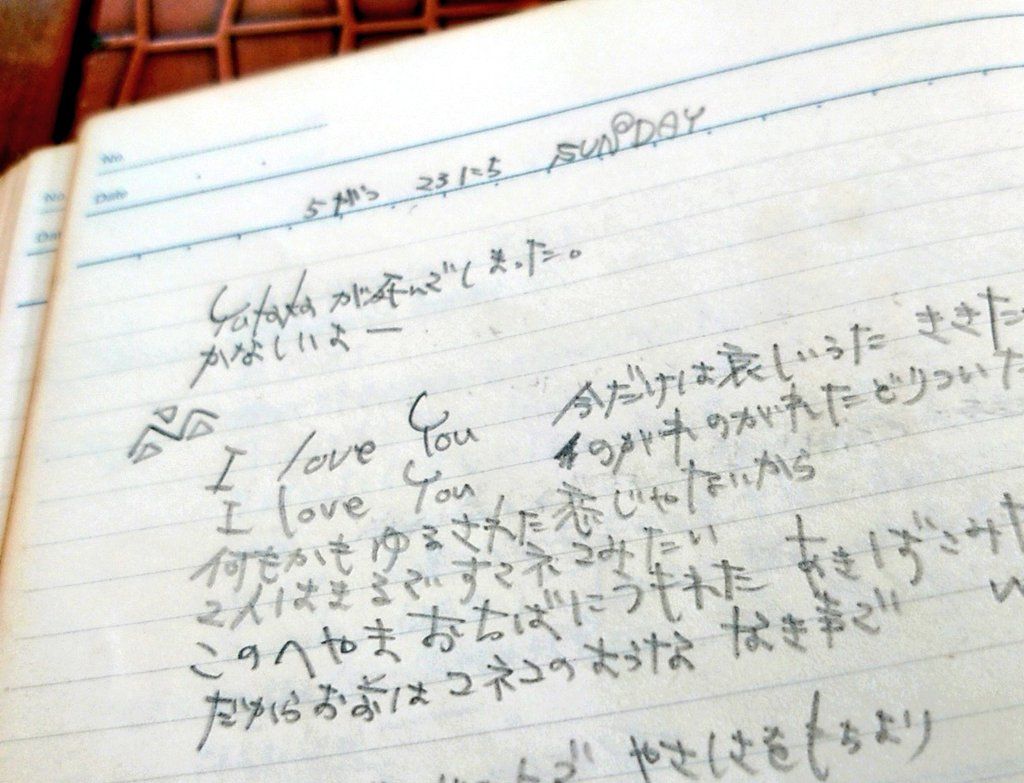 No.
Date
No
Da
5がつ 23にち SUNDAY
Yutakaが死んでしまった。
かなしいよー
I love You 今だけは哀しいうた ききた
I love You のがれ のがれた どりついた
何もかも ゆるされた恋じゃないから
2人はまるで すてネコみたい
このへやは おちばにうもれた あきばこみた
だからおまえは コネコのような なき声で
やさしさをもちより